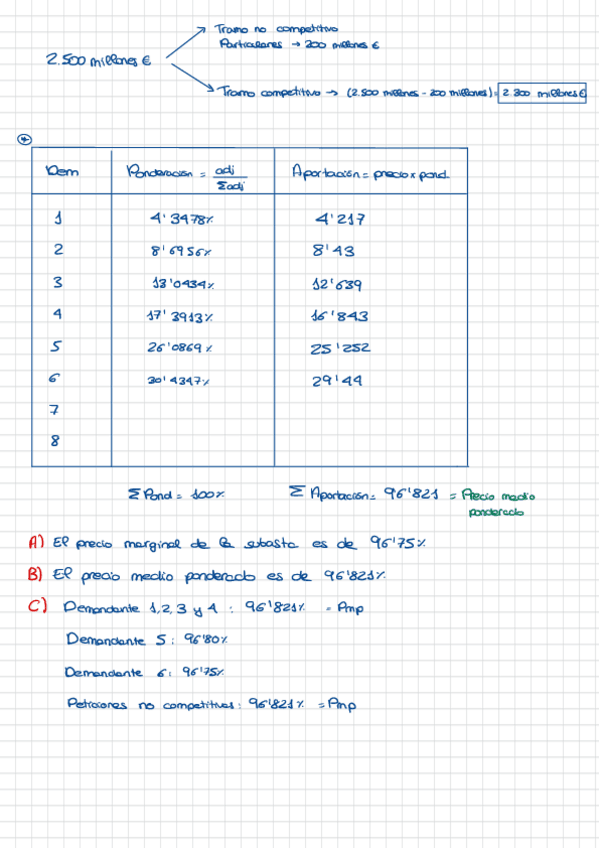 2.500 millones €
Tramo no competitivo
Particulares → 200 millones €
Tramo competitivo → (2.500 millones - 200 millones) = 2.300 millones €
Dem Ponderación = adj / Σadj Aportación = precio x pond.
1 4'3478% 4'217
2 8'6956% 8'43
3 13'0434% 12'639
4 17'3913% 16'843
5 26'0869% 25'252
6 30'4347% 29'44
7
8
Σ Pond = 100% Σ Aportación = 96'821 = Precio medio
ponderado
A) El precio marginal de la subasta es de 96'75%
B) El precio medio ponderado es de 96'821%
C) Demandante 1, 2, 3 y 4 : 96'821% = Pmp
Demandante 5 : 96'80%
Demandante 6 : 96'75%
Peticiones no competitivas : 96'821% = Pmp